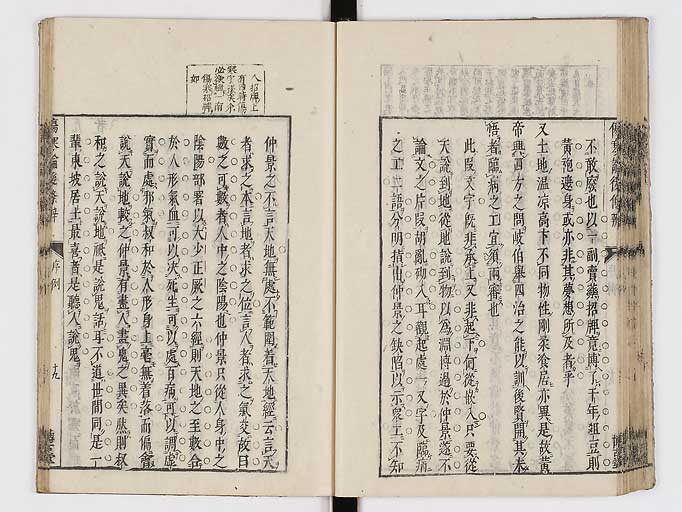 不敢廢也以一副賣藥招牌竟博了千年俎豆則
黃袍邊身或亦非其夢想所及者乎
又土地溫凉高下不同物性剛柔飡居亦異是故黃
帝興四方之問岐伯舉四治之能以訓後賢開其未
悟者臨病之工宜須兩審也
此段文字既非承上又非起下何從嵌入只要從
天說到地從地說到物以為淵博過於仲景遂不
論文之片段胡亂砌入耳觀起處一又字及臨病
之工二語分明指出仲景之缺陷以示衆工不知
入招牌上
有専時傷
寒字様矣不
必獨賴一南
傷寒招牌
仲景之不言天地無處不範圍着天地經云言天
者求之本言地者求之位言人者求之氣交故曰
數之可數者人中之陰陽也仲景只從人身中之
陰陽部署以太少正厥之六經則天地之至數合
於人形氣血可以決死生可以處百病可以調虛
實而處邪氣叔和於人形身上毫無着落而偏會
說天說地較之仲景有畫人畫鬼之異矣然則叔
和之說天說地祇是說鬼話耳不道世間同是一
輩東坡居士最喜者是聽人說鬼
傷寒論後條辨
序例
十九